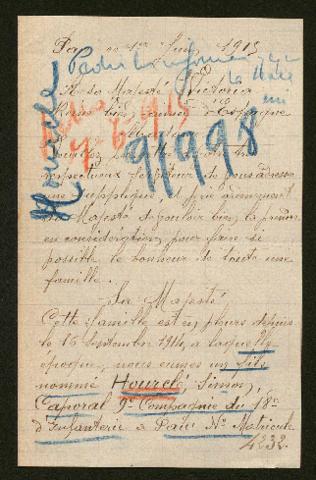 Pau le 1er Juin 1915
Pedir informes
A sa Majesté Victoria
Reine bien aimée d'Espagne
Madrid
9/998
Hourclé
respectueux serviteur de vous adresser
une supplique, et prie ardemment
sa Majesté de vouloir bien la prendre
en considération, pour faire si
possible le bonheur de toute une
famille.
Sa Majesté,
Cette famille est en pleurs depuis
le 16 Septembre 1914, à laquelle
époque, nous eumes un fils
nommé Hourclé, Simon,
Caporal 9e Compagnie du 18e
d'Infanterie à Pau No Matricule
4232.